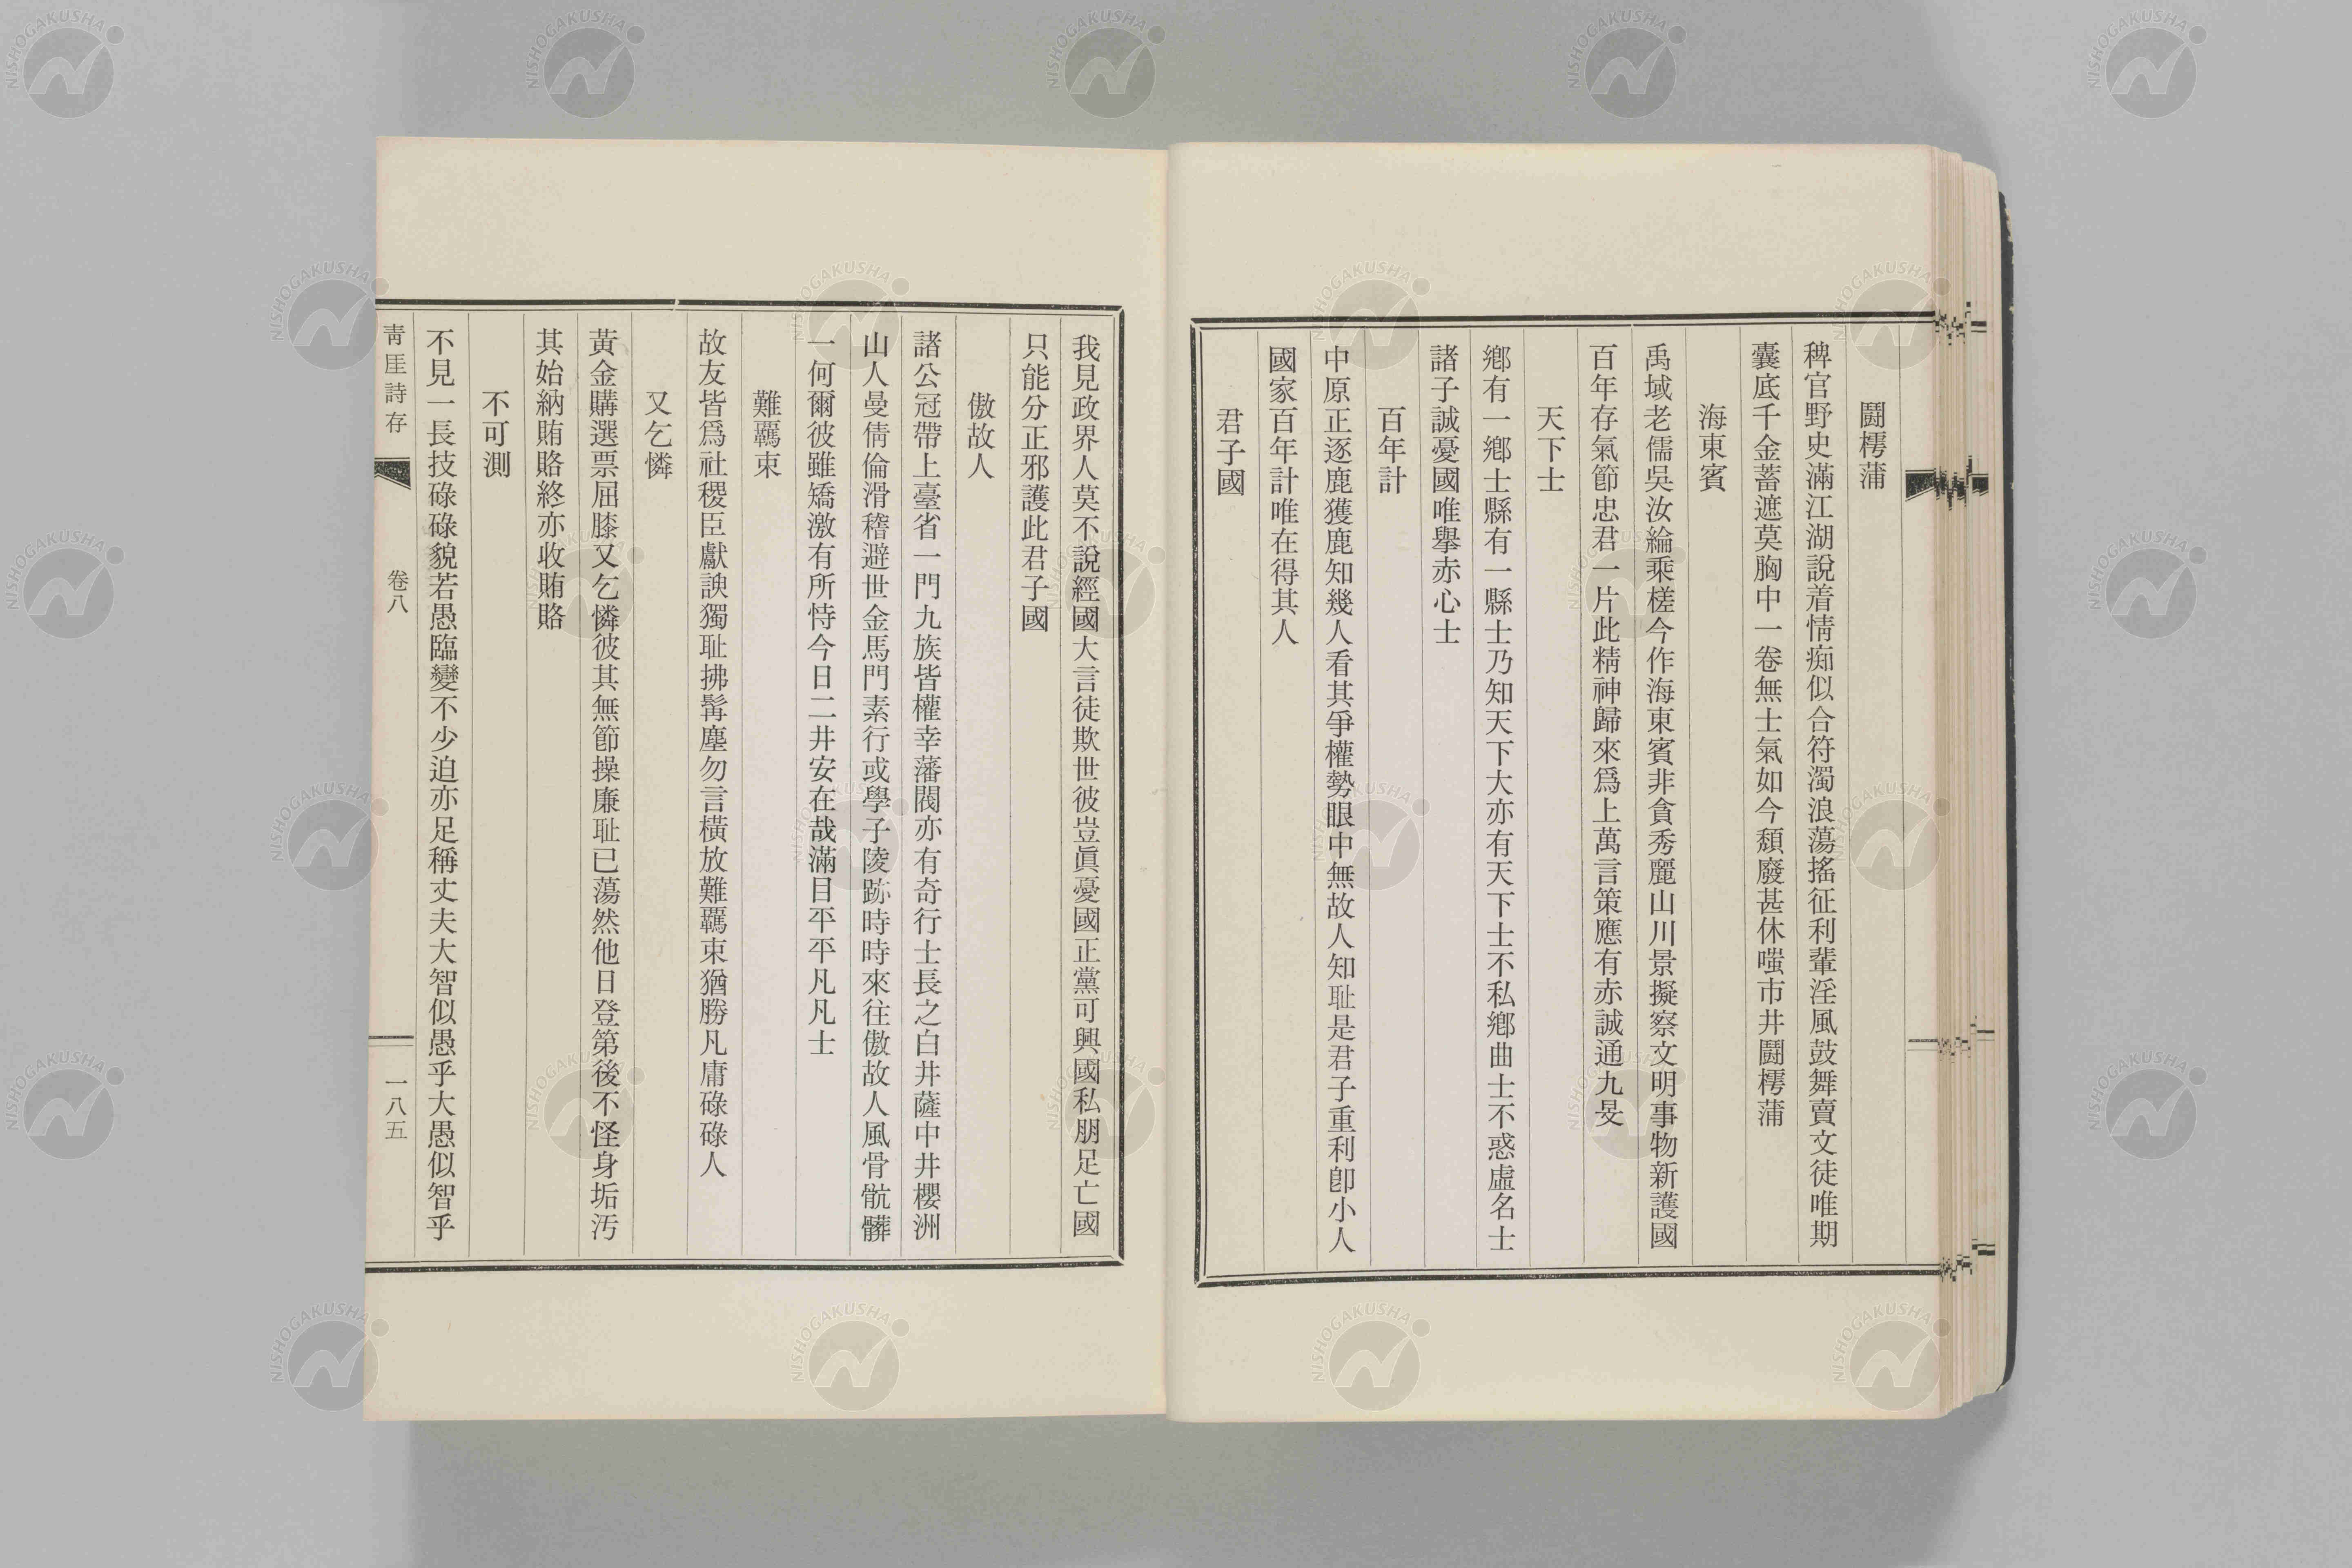 鬪樗蒲
稗官野史滿江湖說着情痴似合符濁浪蕩搖征利輩淫風鼓舞賣文徒唯期
囊底千金蓄遮莫胸中一卷無士氣如今頹廢甚休嗤市井鬪樗蒲
海東賓
禹域老儒吳汝綸乘槎今作海東賓非貪秀麗山川景擬察文明事物新護國
百年存氣節忠君一片此精神歸來爲上萬言策應有赤誠通九旻
天下士
鄕有一鄕士縣有一縣士乃知天下大亦有天下士不私鄕曲士不惑虛名士
諸子誠憂國唯擧赤心士
百年計
中原正逐鹿獲鹿知幾人看其爭權勢眼中無故人知耻是君子重利卽小人
國家百年計唯在得其人
君子國
我見政界人莫不說經國大言徒欺世彼豈眞憂國正黨可興國私朋足亡國
只能分正邪護此君子國
傲故人
諸公冠帶上臺省一門九族皆權幸藩閥亦有奇行士長之白井薩中井櫻洲
山人曼倩倫滑稽避世金馬門素行或學子陵跡時時來往傲故人風骨骯髒
一何爾彼雖矯激有所恃今日二井安在哉滿目平平凡凡士
難羈束
故友皆爲社稷臣獻諛獨耻拂髯塵勿言橫放難羈束猶勝凡庸碌碌人
又乞憐
黃金購選票屈膝又乞憐彼其無節操廉耻已蕩然他日登第後不怪身垢汚
其始納賄賂終亦收賄賂
不可測
不見一長技碌碌貌若愚臨變不少迫亦足稱丈夫大智似愚乎大愚似智乎
靑厓詩存
卷八
一八五
NISHOGAKUSHA